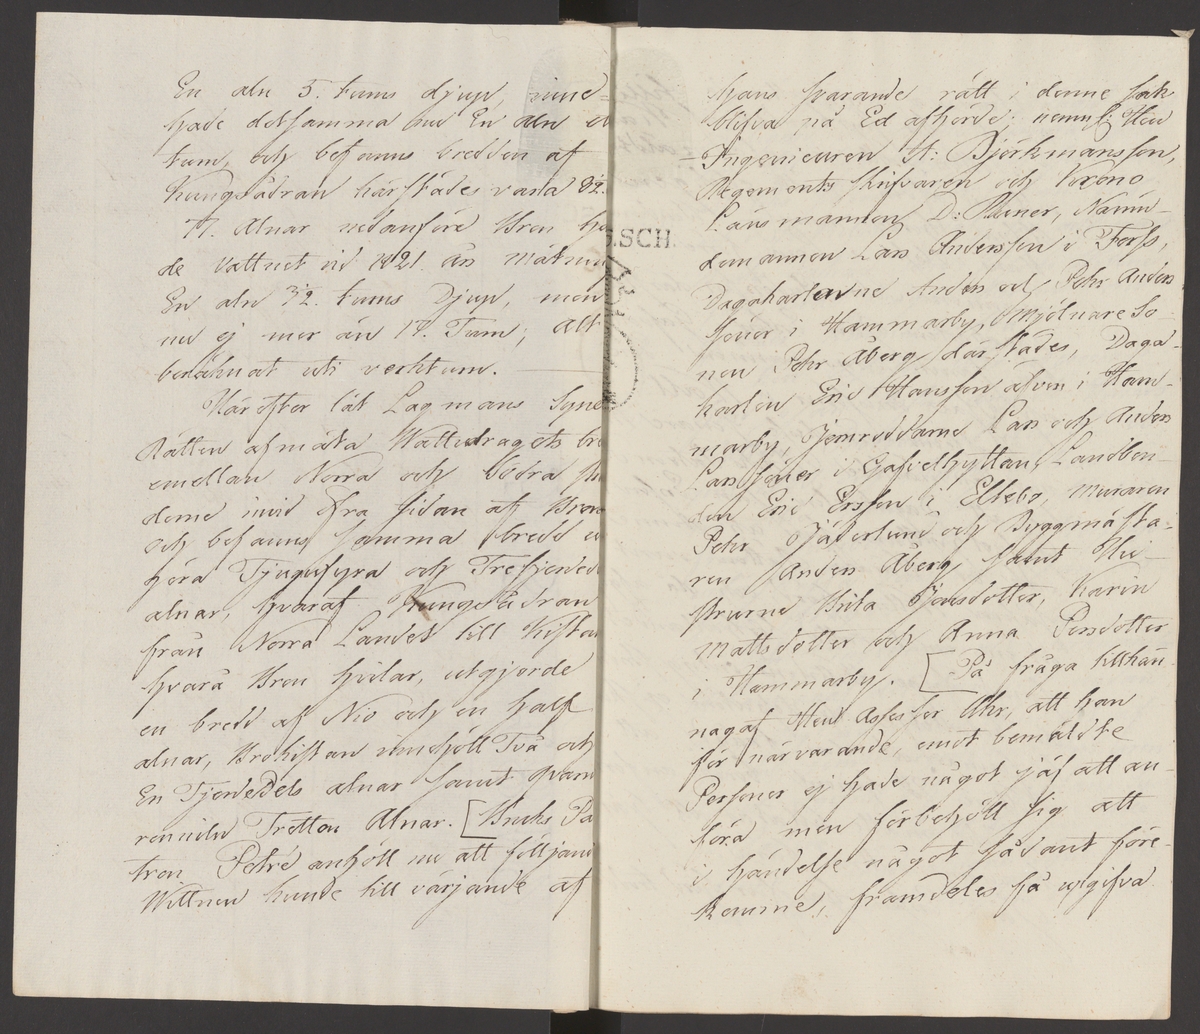 En aln 5. tums djup, inne-
hade detsamma nu En aln
tum, och befanns bredden af
Kungsådran härstädes vara 82.
77. Alnar nedanföre Bron
de vattnet vid 1821. års mätn
En aln 3½. tums djup, men
nu ej mer än 17. Tum; Alt
beräknat uti verktum.
Härefter lät Lagmans Syne
Rätten afmäta Wattudragets bre
emellan Norra och Södra
derne invid öfra sidan af Bron
och befanns samma bredd
göra Tjugufyra och Trefjerded
alnar, hvaraf Kungsådran
från Norra Landet till Kistan
hvarå Bron hvilar, utgjorde
en bredd af Nio och en half
alnar, Brokistan innehöll Två och
En Fjerdedels alnar samt qvarn
ränniln Tretton Alnar. [Bruks Pa
tron Petré anhöll nu att följand
Wittnen kunde till värjande af
hans svarande rätt i denne sak
blifva på Ed afhörde; nemnl: Herr
Ingenieuren A: Björkmansson,
Regements skrifvaren och Krono
Länsmannen D: Råmer, Nämn-
demannen Lars Andersson i Forss,
Dagakarlarne Anders och Pehr Anders
söner i Hammarby, Mjölnare So-
nen Pehr Åberg därstädes, Daga-
karlen Eric Hansson älven i Ham-
marby, Smeddarne Lars och Anders
Lars söner i Gafvelhyttan, Landbon-
den Eric Ersson i Elkebo, Muraren
Pehr Söderlund och Byggmästa-
ren Anders Åberg, samt Hu-
strurne Brita Jonsdotter, Karin
Mattsdotter och Anna Persdotter
i Hammarby. [På fråga tillkän-
nagaf Herr Assessor Uhr, att han
för närvarande, emot bemäldte
Personer ej hade något jäf att an-
föra men förbehöll sig att
i händelse något sådant före-
komme, framdeles få uppgifva
S.SCH.